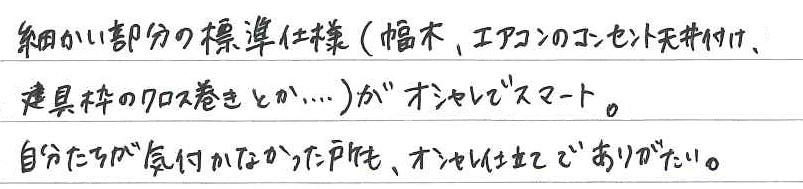 細かい部分の標準仕様（幅木、エアコンのコンセント天井付け、
建具枠のクロス巻きとか‥‥）が オシャレでスマート。
自分たちが気付かなかった所も、オシャレ仕立てでありがたい。